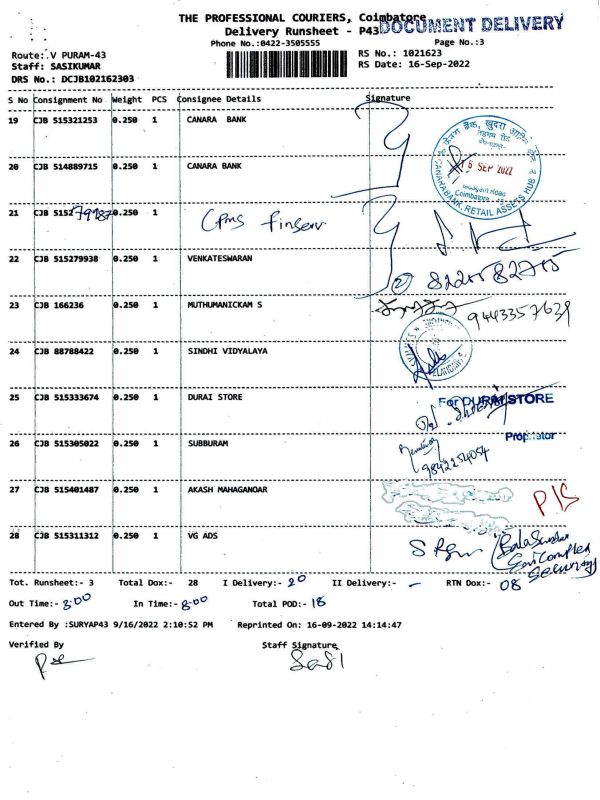 THE PROFESSIONAL COURIERS, Coimbatore
DOCUMENT DELIVERY
Delivery Runsheet - P43
Phone No.:0422-3505555
Page No.:3
Route:.V PURAM-43
RS No.: 1021623
Staff: SASIKUMAR
RS Date: 16-Sep-2022
DRS No.: DCJB102162303
S No Consignment No Weight PCS Consignee Details Signature
19 CJB 515321253 0.250 1 CANARA BANK
16 SEP 2022
Coimbatore
CANARA BANK, RETAIL ASSETS HUB
20 CJB 514889715 0.250 1 CANARA BANK
21 CJB 51527998 0.250 1 Cpms finserv
22 CJB 515279938 0.250 1 VENKATESWARAN
23 CJB 166236 0.250 1 MUTHUMANICKAM S
9443357639
24 CJB 88788422 0.250 1 SINDHI VIDYALAYA
25 CJB 515333674 0.250 1 DURAI STORE
For DURAI STORE
Proprietor
26 CJB 515305022 0.250 1 SUBBURAM
9842254054
27 CJB 515401487 0.250 1 AKASH MAHAGANOAR
P/S
28 CJB 515311312 0.250 1 VG ADS
Security
Tot. Runsheet:- 3 Total Dox:- 28 I Delivery:- 20 II Delivery:- - RTN Dox:- 08
Out Time:- 3:00 In Time:- 8:00 Total POD:- 18
Entered By :SURYAP43 9/16/2022 2:10:52 PM Reprinted On: 16-09-2022 14:14:47
Verified By Staff Signature
SaSI